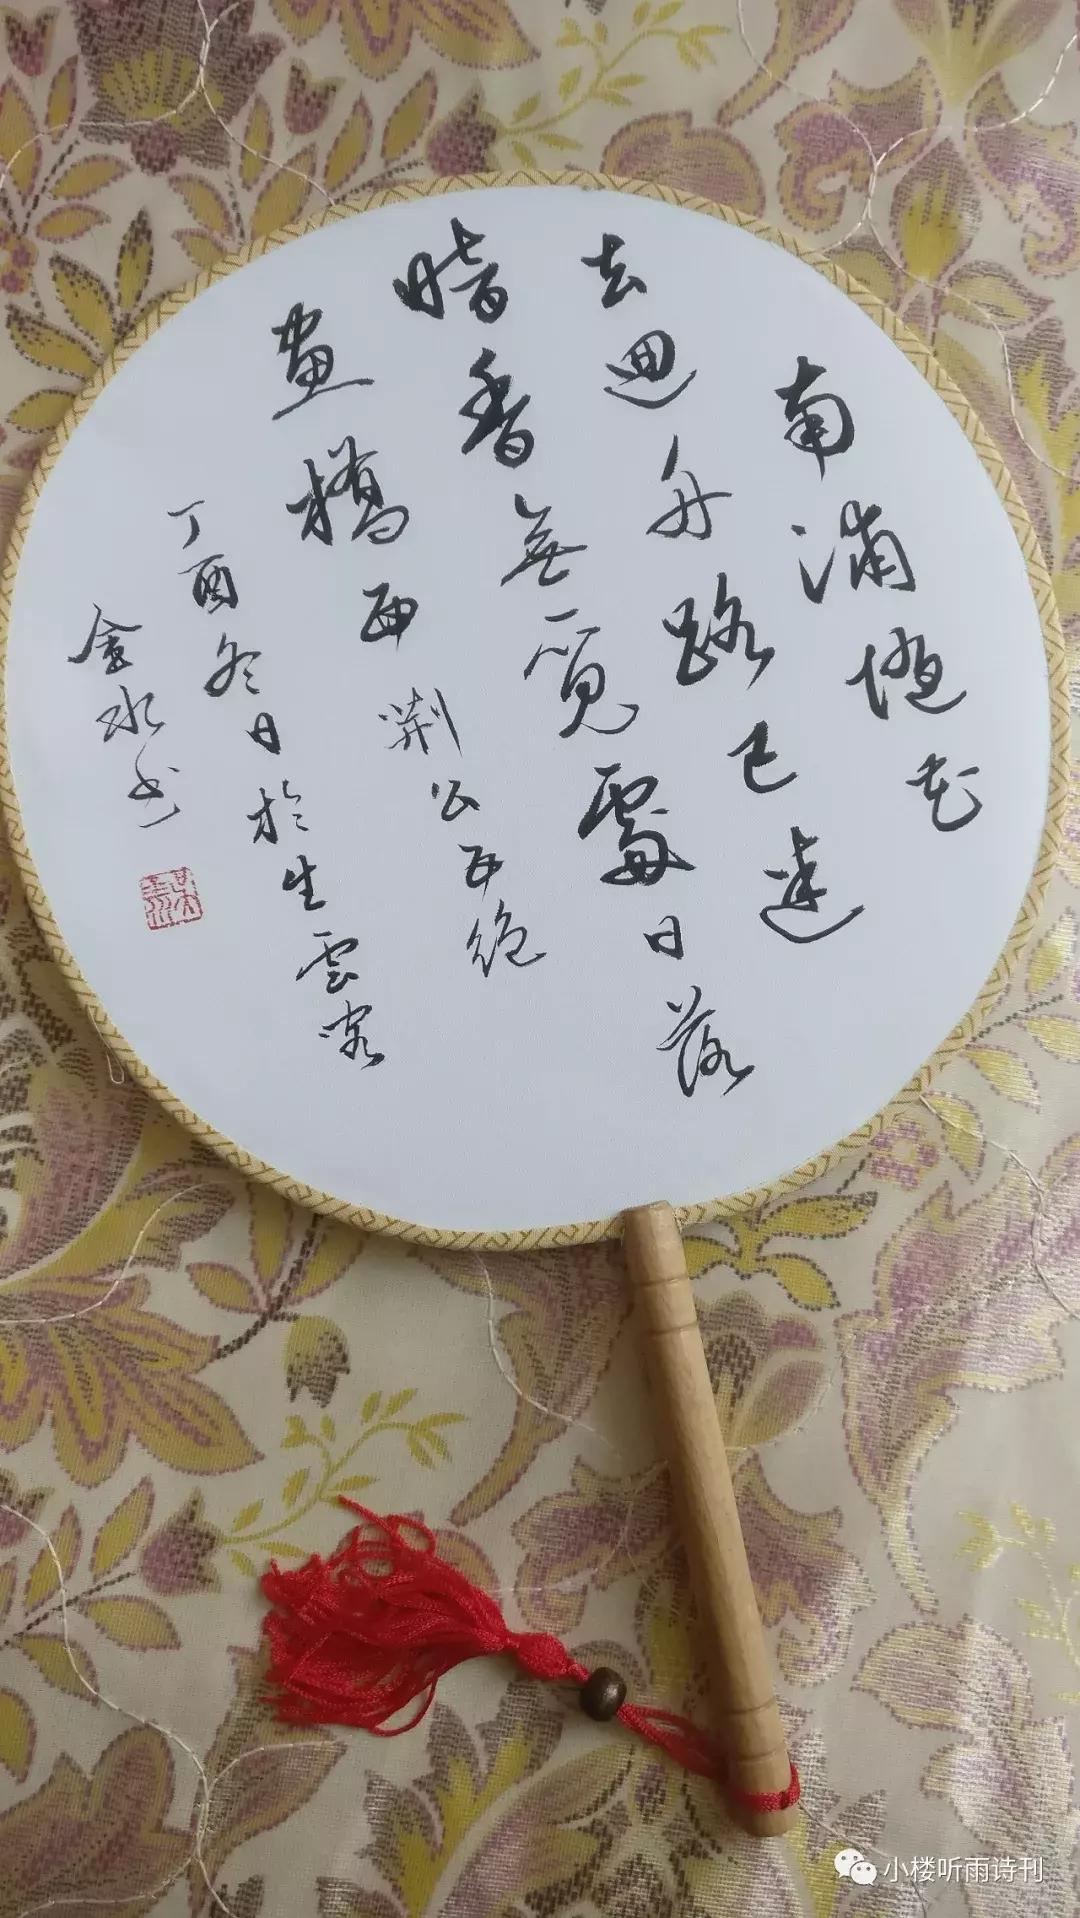 南浦隨花
去迴舟路已迷
暗香無覓處日落
畫橋西 荆公五絕
丁酉冬日於生雲
金水书
小楼听雨诗刊